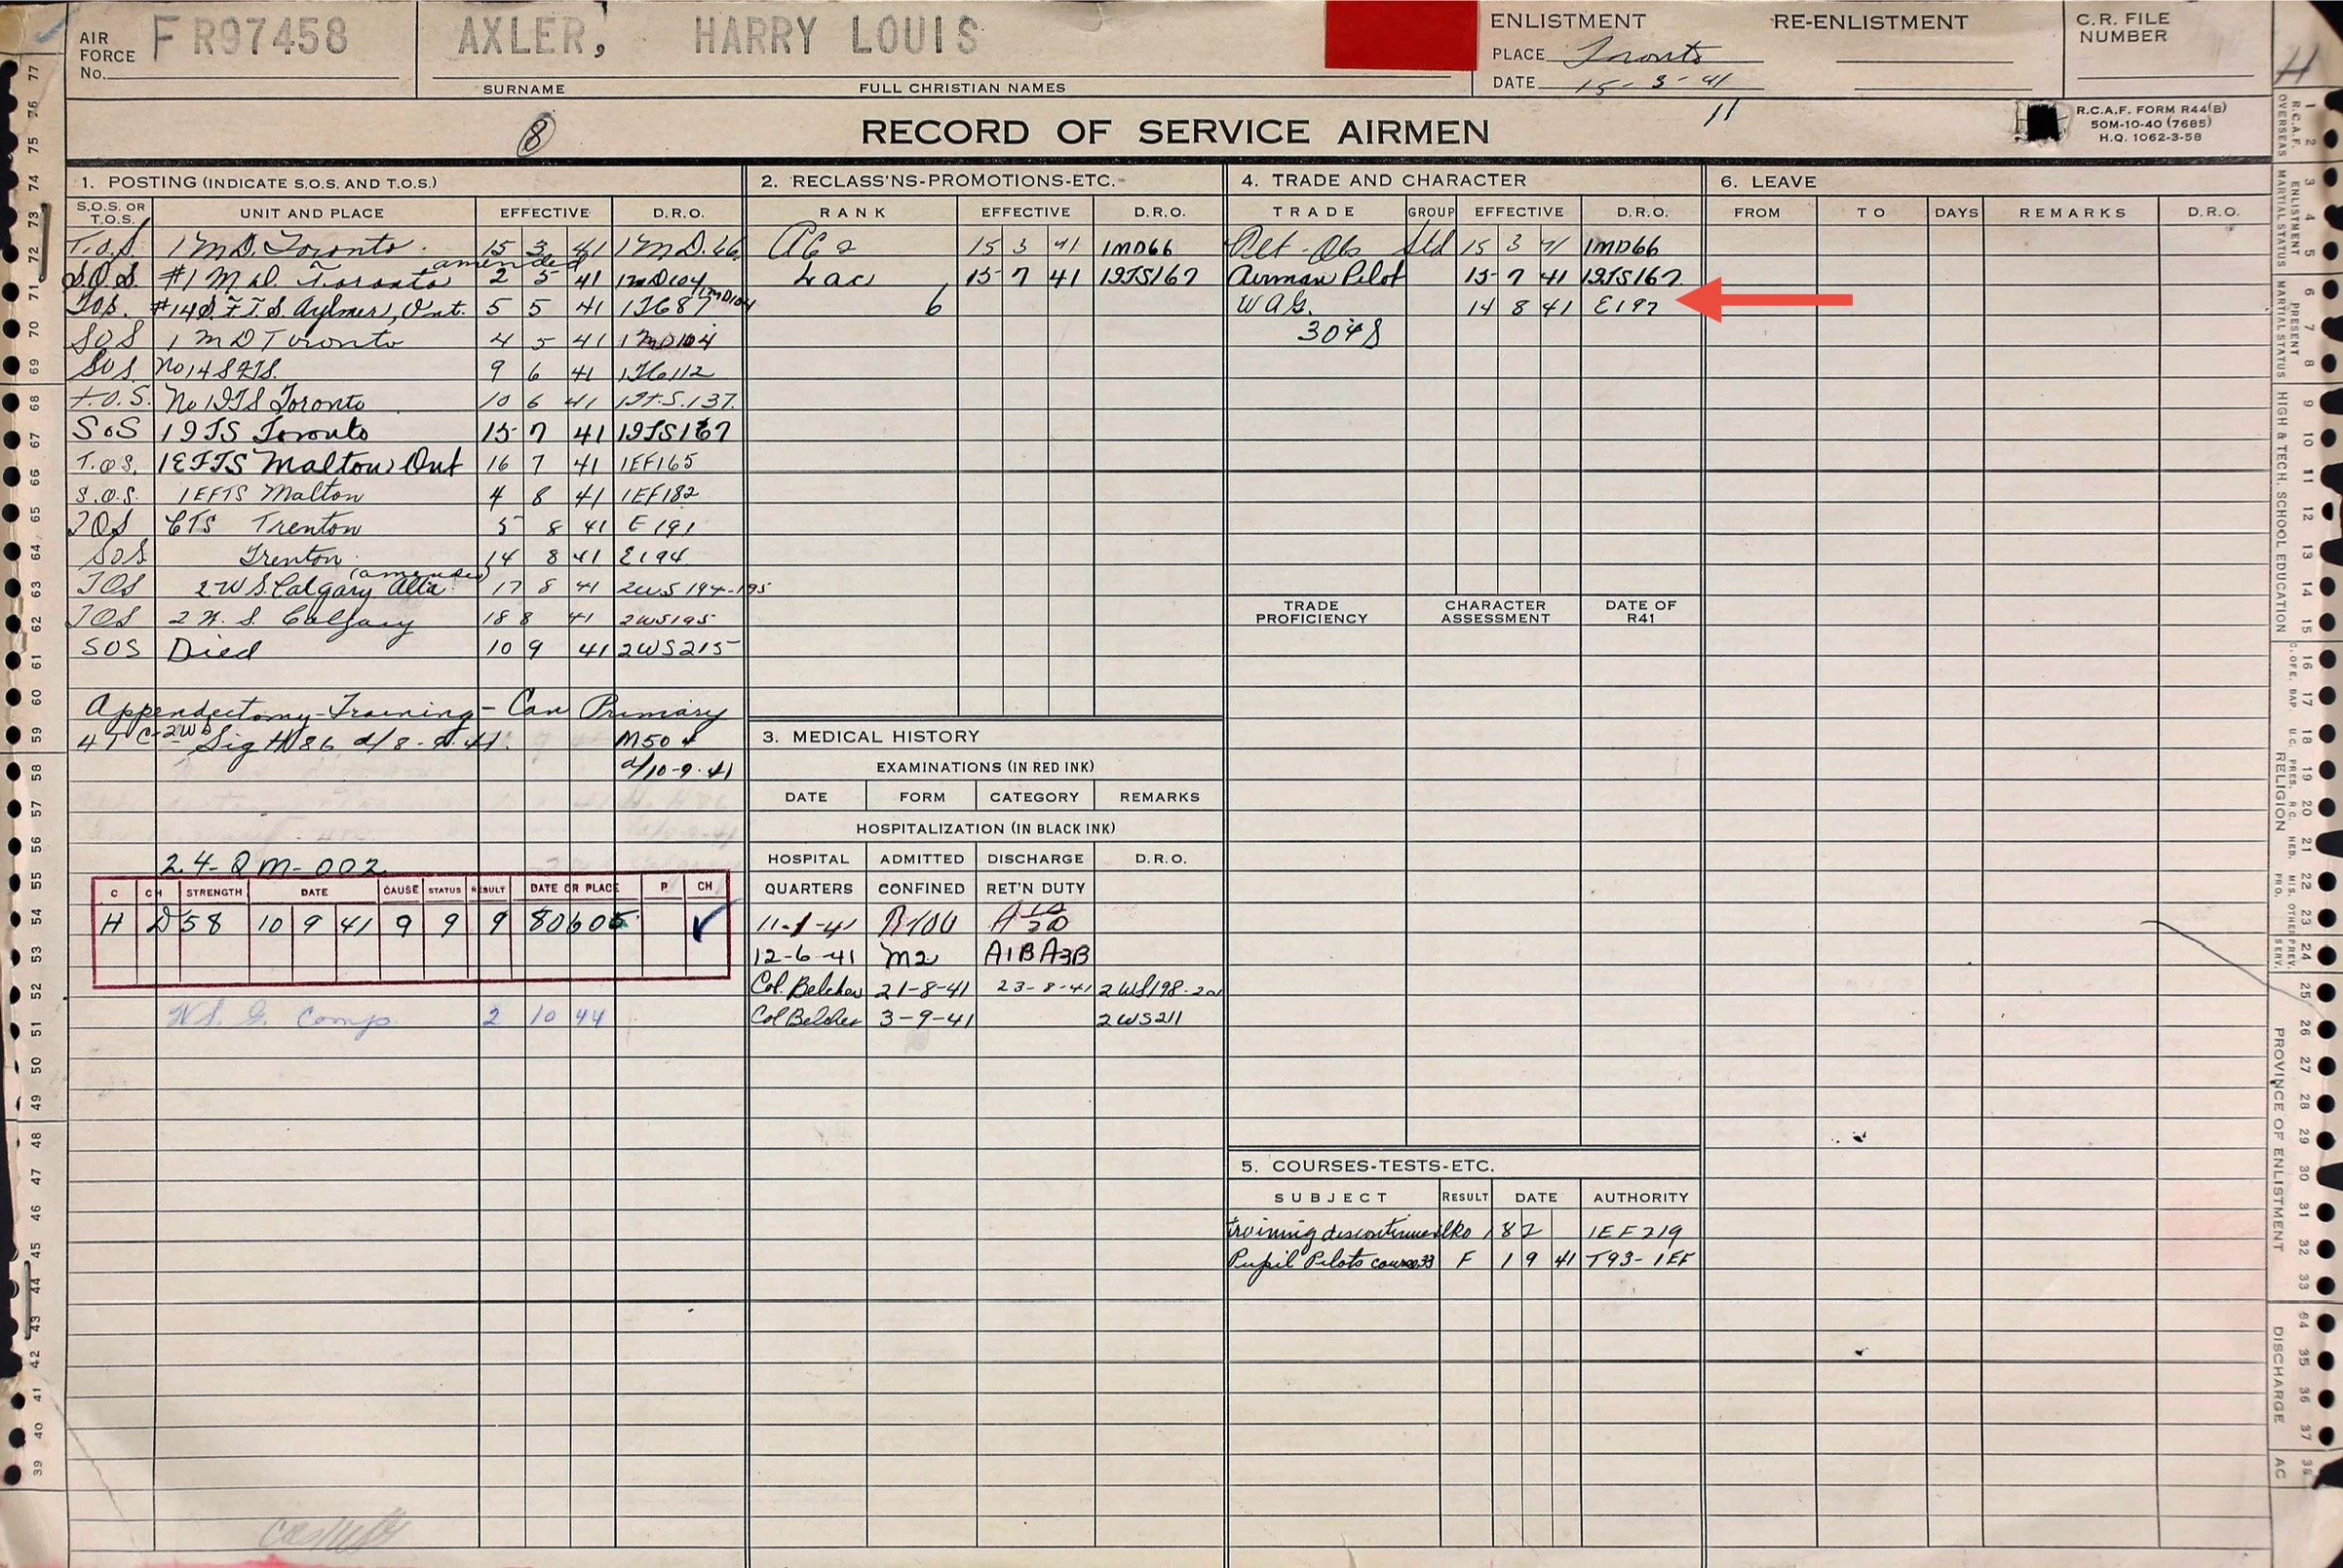 AIR FORCE No. F R97458
AXLER, HARRY LOUIS
SURNAME FULL CHRISTIAN NAMES
ENLISTMENT RE-ENLISTMENT
PLACE Toronto
DATE 15-3-41
11
C.R. FILE NUMBER
H
8
RECORD OF SERVICE AIRMEN
R.C.A.F. FORM R44(B)
50M-10-40 (7685)
H.Q. 1062-3-58
1. POSTING (INDICATE S.O.S. AND T.O.S.)
S.O.S. OR T.O.S. UNIT AND PLACE EFFECTIVE D.R.O.
T.O.S. 1 M.D. Toronto. 15 3 41 1 M.D. 66
amended
S.O.S #1 M D. Toronto 2 5 41 1MD104
T.o.s. #14 S.F.T.S. Aylmer, Ont. 5 5 41 1J687 1MD104
SOS 1 M D Toronto 4 5 41 1MD104
SOS No 14 SFTS. 9 6 41 1J6112
T.O.S. No 1 ITS Toronto 10 6 41 1I.T.S.137.
SoS 1 ITS Toronto 15 7 41 1ITS167
T.O.S. 1 EFTS Malton Ont 16 7 41 1EF165
S.O.S. 1 EFTS Malton 4 8 41 1EF182
TOS CTS Trenton 5 8 41 E 191
SOS Trenton 14 8 41 E194
(amended)
TOS 2 W S. Calgary Alta. 17 8 41 2WS 194-195
TOS 2 W. S. Calgary 18 8 41 2WS195
SOS Died 10 9 41 2WS215
Appendectomy-Training-Can Primary
47 C-2W Sig H86 d/8-9-41. M504
d/10-9-41
24-QM-002
C CH STRENGTH DATE CAUSE STATUS RESULT DATE OR PLACE P CH
H D 58 10 9 41 9 9 9 80605 ✓
W.S.G. Comp 2 10 44
2. RECLASS'NS-PROMOTIONS-ETC.
RANK EFFECTIVE D.R.O.
AC 2 15 3 41 1MD66
Lac 15 7 41 1ITS167
6
3. MEDICAL HISTORY
EXAMINATIONS (IN RED INK)
DATE FORM CATEGORY REMARKS
HOSPITALIZATION (IN BLACK INK)
HOSPITAL ADMITTED DISCHARGE D.R.O.
QUARTERS CONFINED RET'N DUTY
11-1-41 R100
12-6-41 M2 A1B A3B
Col. Belcher 21-8-41 23-8-41 2WS198-201
Col Belcher 3-9-41 2WS211
4. TRADE AND CHARACTER
TRADE GROUP EFFECTIVE D.R.O.
Plt-Obs Std 15 3 41 1MD66
Airman Pilot 15 7 41 1ITS167
W A G. 14 8 41 E197
3048
TRADE PROFICIENCY CHARACTER ASSESSMENT DATE OF R41
5. COURSES-TESTS-ETC.
SUBJECT RESULT DATE AUTHORITY
training discontinued 1 8 2 1EF219
Pupil Pilots course 33 F 1 9 41 T93-1EF
6. LEAVE
FROM TO DAYS REMARKS D.R.O.
77
76
75
74
73
72
71
70
69
68
67
66
65
64
63
62
61
60
59
58
57
56
55
54
53
52
51
50
49
48
47
46
45
44
43
42
41
40
39
1 2 3 4 5 6 7 8 9 10 11 12 13 14 15 16 17 18 19 20 21 22 23 24 25 26 27 28 29 30 31 32 33 34 35 36 37 38
OVERSEAS
ENLISTMENT MARTIAL STATUS
PRESENT MARTIAL STATUS
HIGH & TECH. SCHOOL EDUCATION
C. OF E. BAP U.C. PRES. R.C. HEB. MIS. OTHER PRO.
RELIGION
PREV. SERV.
PROVINCE OF ENLISTMENT
DISCHARGE
AC